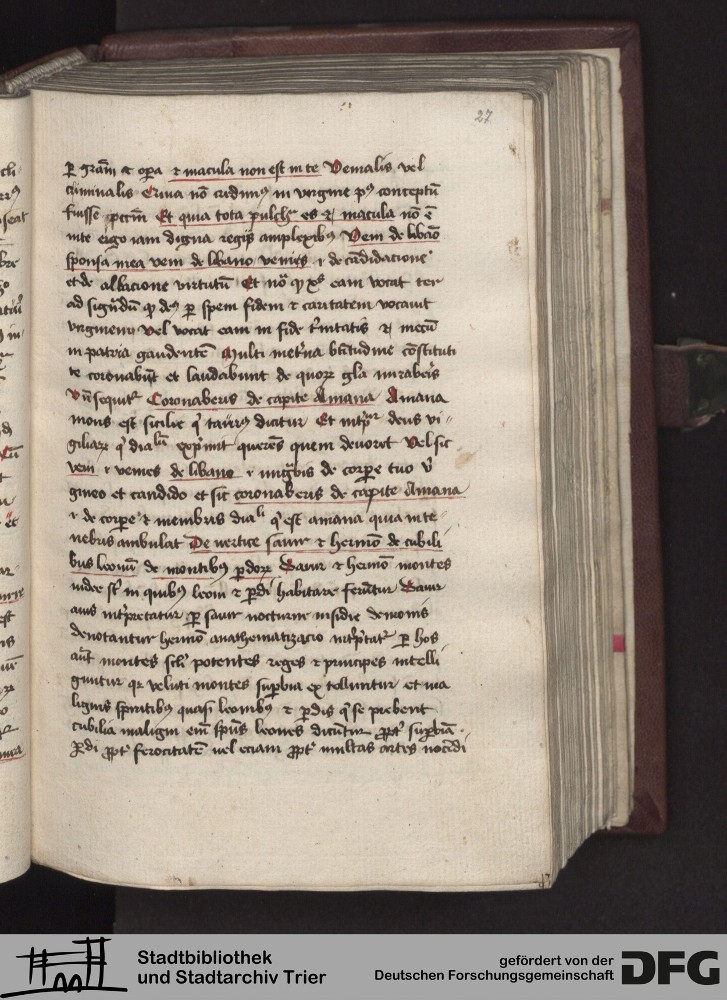 27
ꝑ grām ⁊ oꝑa ⁊ macula non est in te Venialis vel
criminalis Eciva nō credimꝰ in virgine pꝰ conceptū
fuisse pctm̄ Et quia tota pulchͬ es ⁊ macula nō ē
in te ergo iam digna regis amplexibꝰ Veni de libāo
sponsa mea veni de libano venies ⁊ de cādidacione
et de albacione virtutū Et nōͣ ꝙ xp̄s eam vocat ter
ad sigͣndū ꝙ deꝰ ꝑ spem fidem ⁊ caritatem vocavit
virginem vel vocat eam in fide tͥnitatis ⁊ mecū
in patria gaudentē Multi metͥna bt̄itudine cōstituti
te coronabūt et laudabunt de quoꝝ gla mirabeͥs
Vn̄ sequitͬ Coronaberis de capite Amana Amana
mons est sicilie qͥ taurꝰ dicitur Et intp̄tͣr deus vi
giliaꝝ qͥ dialū expͥmit querēs quem devoret Vel sic
veni ⁊ venies de libano ⁊ de corꝑe tuo vͥ
gineo et candido et sic coronaberis de capite Amana
⁊ de corꝑe ⁊ membris diali qͥ est amana quia in te
nebris ambulat De vertice sanir ⁊ hermō de cubili
bus leonū de montibꝰ ꝑdoꝝ Sanir ⁊ hermō montes
iudee st̄ in quibꝰ leoni ⁊ ꝑdi habitare ferūtur Sanir
avis intͥpretatur ꝑ sanir nocturne insidie demonis
denotantur hermō anathematizacio intͥp̄tatͬ ꝑ hos
aūt montes scilꝫ potentes reges ⁊ principes intelli
guntur qꝛ veluti montes suꝑbia extolluntur et ma
lignis spiritibꝰ quasi leonibꝰ ⁊ ꝑdis qͥ se prebent
cubilia maligni em̄ spūs leones dicūtur ꝓpt̄ suꝑbiā
ꝑdi ꝓpt̄ ferocitatē vel eciam ꝓpt̄ multas artes nocēdi
Stadtbibliothek
und Stadtarchiv Trier
gefördert von der
Deutschen Forschungsgemeinschaft
DFG